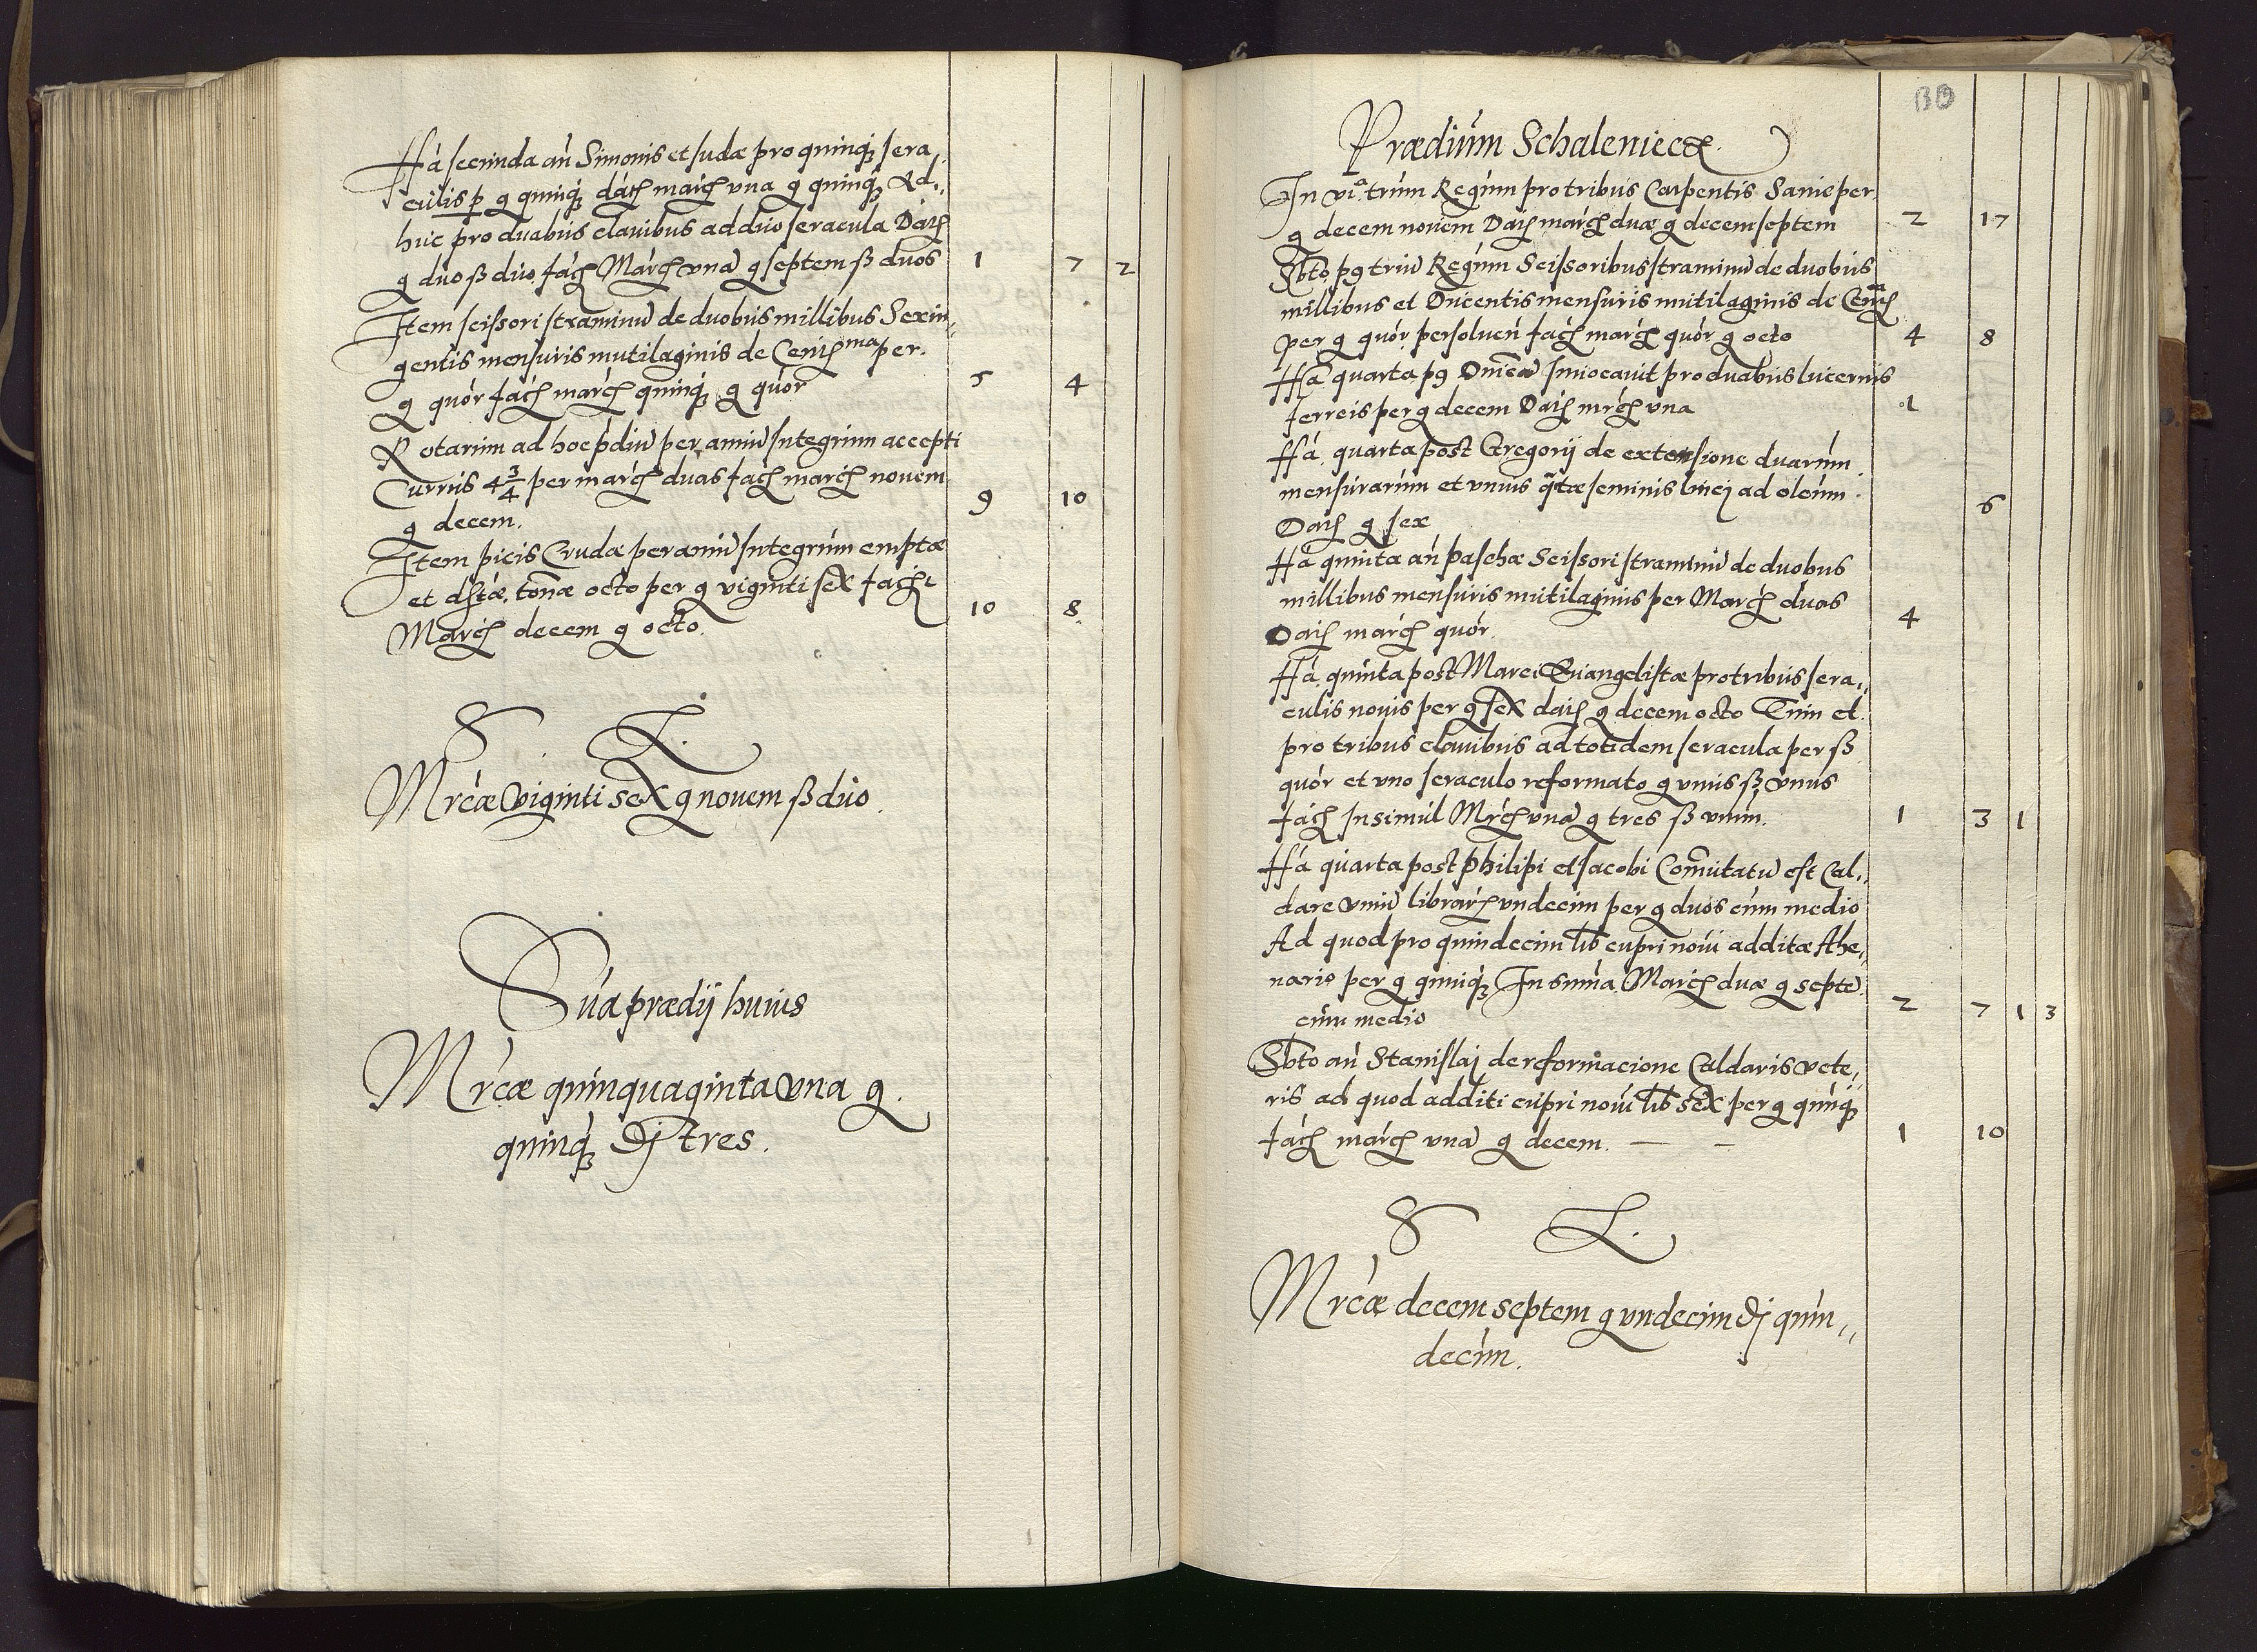 Ffá secunda añ Simonis et Judæ pro quinqʒ sera„
culis p g quinqʒ dátꝭ marcꝭ una g quinqʒ Ad„
huc pro duabus clauibus ad duo seracula Datꝭ
g duo ß duo fácꝭ Márcꝭ una g septem ß duos 1 7 2
Item scissori straminũ de duobus millibus Sexin„
gentis mensuris mutilaginis de Centꝭ ma per
g quór fácꝭ márcꝭ quinqʒ g quór 5 4
Rotarum ad hoc pdiũ per annũ Integrum accepti
Currus 4 3/4 per márcꝭ duas facꝭ marcꝭ nouem
g decem. 9 10
Item picis Crudæ per annũ Integrúm emptæ
et dstáe. tonæ octo per g viginti sex facꝭt
Marcꝭ decem g octo. 10 8
S L.
Mrcáe viginti sex g nouem ß duo.
Súa prædij huius
Mrcæ quinquaginta vna g.
quinqʒ Dj tres.
Prædiúm Schaleniecæ.
In viᵃ. triúm Regúm pro tribus Carpentis Sanie per
g decem nouem Datꝭ márcꝭ duæ g decem septem 2 17
Sbto. pg triũ Regúm Scissoribus straminũ de duobus
millibus et Ducentis mensuris mutilaginis de Centꝭ
per g quór. persolueń facꝭ marcꝭ quór g octo 4 8
Ffá quarta pg Dnicã Inuocauit pro duabus lucernis
ferreis per g decem Datꝭ mrcꝭ vna 1
Ffá. quarta post Gregorij de extensione duarúm
mensurarúm et vnius qrtæ seminis linej ad oleúm
Datꝭ g sex 6
Ffá quinta añ paschæ Scissori straminũ de duobus
millibus mensuris mutilaginis per Marcꝭ duas
Datꝭ márcꝭ quór. 4
Ffá quinta post Marci Euangelistæ pro tribus sera„
culis nouis per g sex datꝭ g decem octo Tum et
pro tribus clauibus ad totidem seracula per ß
quór et vno seraculo reformato g vnus ß vnus
fácꝭ Insimúl Mrcꝭ vna g tres ß vnúm. 1 3 1
Ffá quarta post philipi et Jacobi Comutatũ est Cal„
dare vnũ librarꝭ vndecim per g duos cúm medio
Ad quod pro quindecim lib cupri noui additæ Ahe„
nario per g quinqʒ In suma Marcꝭ duæ g septẽ
cúm medio 2 7 1 3
Sbto añ Stanislaj de reformacione Caldaris vete„
ris ad quod additi cúpri noui lib sex per g quinqʒ
fácꝭ márcꝭ vna g decem. 1 10
S L.
Mrcáe decem septem g vndecim Dj quin„
decim.